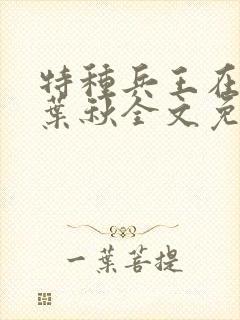 特種兵王在
葉秋全文免
一葉菩提